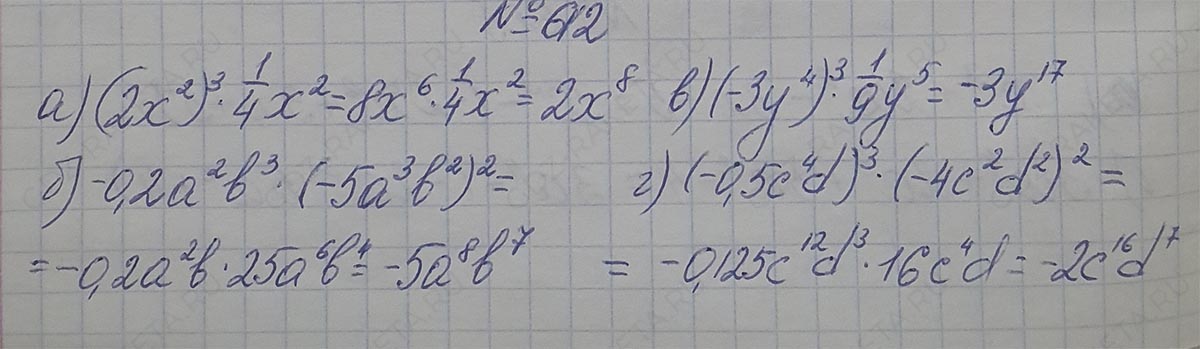 №612
а) (2x²)³ · 1/4 x² = 8x⁶ · 1/4 x² = 2x⁸ в) (-3y⁴)³ · 1/9 y⁵ = -3y¹⁷
б) -0,2a²b³ · (-5a³b²)² = г) (-0,5c⁴d)³ · (-4c²d²)² =
= -0,2a²b · 25a⁶b⁴ = -5a⁸b⁷ = -0,125c¹²d³ · 16c⁴d = -2c¹⁶d⁷